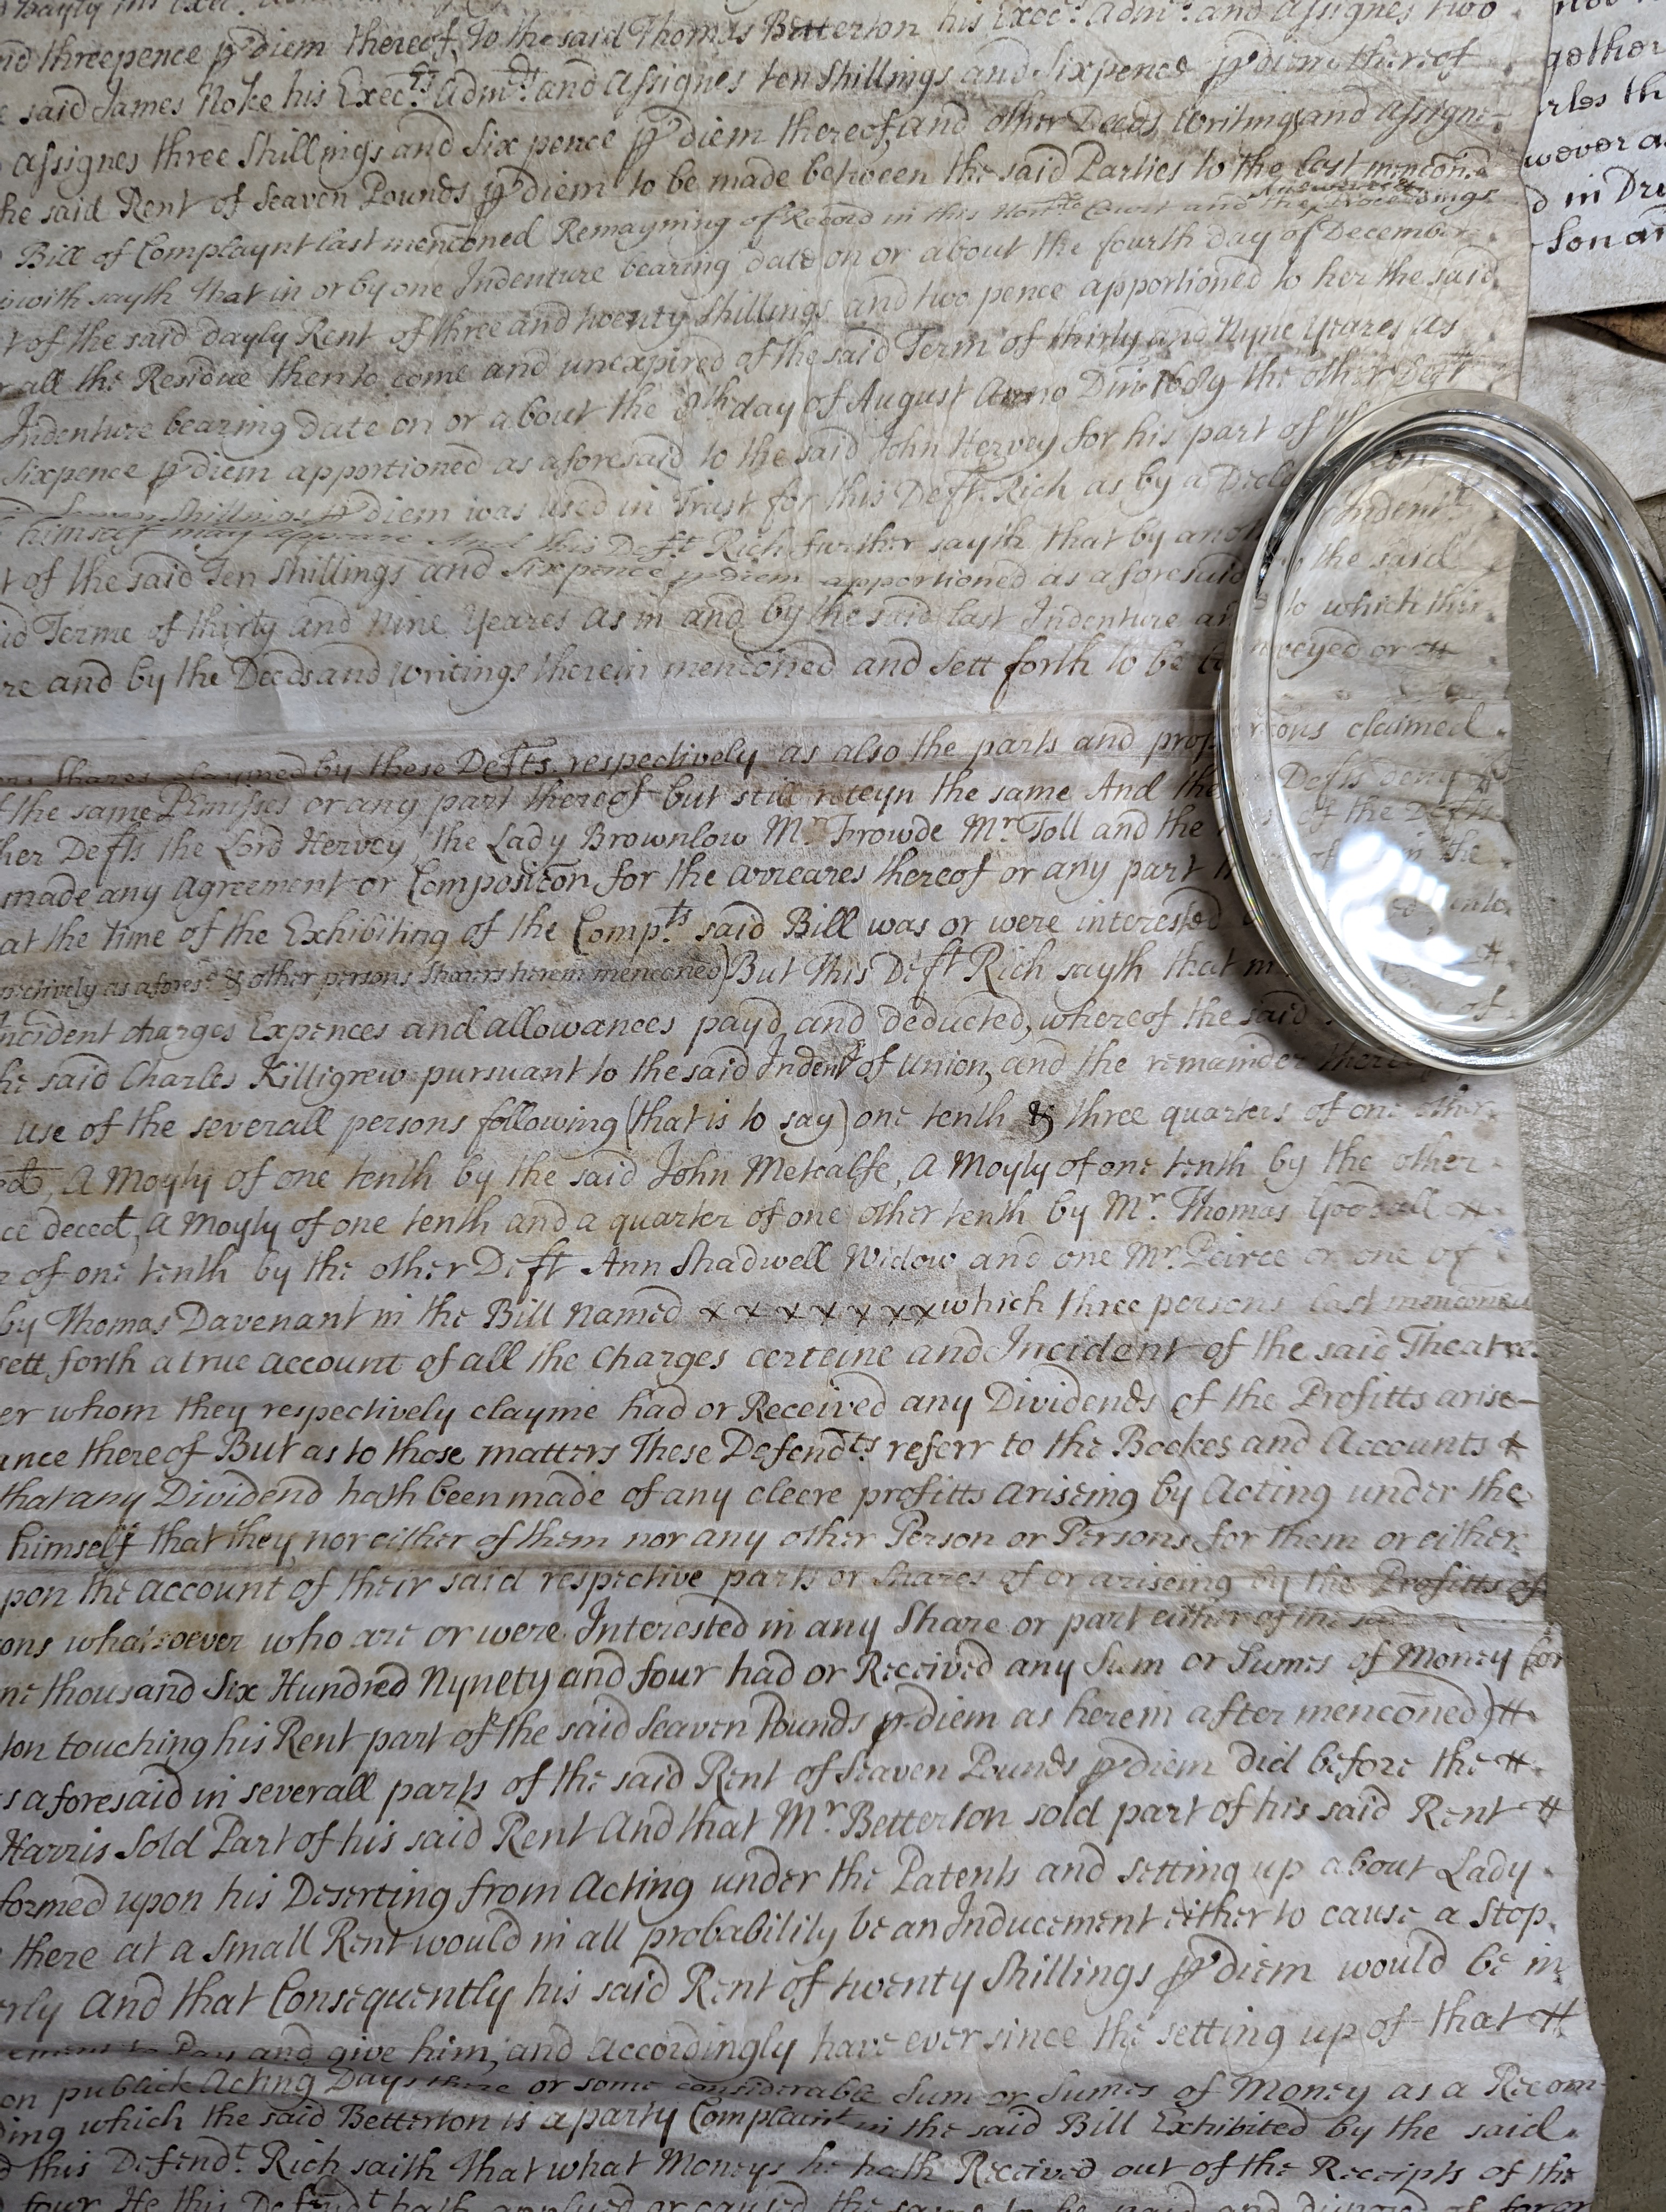 nd threepence p diem thereof, To the said Thomas Betterton his Execrs Admrs and Assignes two
said James Noke his Execrs Admrs and Assignes ten Shillings and Sixpence p diem thereof
Assignes three Shillings and Six pence p diem thereof, and other Deeds, writings and Assigne-
he said Rent of Seaven Pounds p diem to be made between the said Parties to the last menconed
Bill of Complaynt last menconed Remayning of Record in this Honble Court and the Answeres & Proceedings
with sayth that in or by one Indenture bearing date on or about the fourth day of December
t of the said dayly Rent of three and twenty Shillings and two pence apportioned to her the said
all the Residue then to come and unexpired of the said Term of thirty and Nyne Yeares As
Indenture bearing date on or about the 8th day of August Anno Dm 1689 the other Deft
Sixpence p diem apportioned as aforesaid to the said John Hervey for his part of
Shillings p diem was used in Trust for this Deft Rich as by a
himself may appeare And this Deft Rich further sayth that by Indent
t of the said Ten Shillings and Sixpence p diem apportioned as aforesaid the said
id Terme of thirty and Nine Yeares As in and by the said last Indenture to which this
re and by the Deeds and writings therein mentioned and sett forth to be conveyed or #
Shares claymed by these Defts respectively as also the parts and claimed
the same Pmisses or any part thereof but still reteyn the same And the Defts deny
her Defts the Lord Hervey, the Lady Brownlow Mr Frowde Mr Toll and the of the Defts
made any Agreement or Composicon for the arreares thereof or any part in the
at the time of the Exhibiting of the Compts said Bill was or were interested
pectively as afores & other persons Sharers herein menconed) But this Deft Rich sayth that
ncident charges Expences and allowances payd, and deducted, whereof the said of
he said Charles Killigrew pursuant to the said Indent of Union, and the remainder
use of the severall persons following (that is to say) one tenth & three quarters of one other
A Moyty of one tenth by the said John Metcalfe, A Moyty of one tenth by the other
ce decet, A Moyty of one tenth and a quarter of one other tenth by Mr. Thomas Goodall #
of one tenth by the other Deft Ann Shadwell Widow and one Mr. Peirce or one of
by Thomas Davenant in the Bill named x x x x x x x which three persons last menconed
sett forth a true account of all the Charges certeine and Incident of the said Theatre
er whom they respectively clayme had or Received any Dividends of the Profitts arise-
ance thereof But as to those matters These Defendts referr to the Bookes and Accounts
that any Dividend hath been made of any cleere profitts ariseing by Acting under the
himself that they nor either of them nor any other Person or Persons for them or either
pon the account of their said respective parts or Shares of or ariseing by the Profitts of
ons whatsoever who are or were Interested in any Share or part either of the said
ne thousand Six Hundred Nynety and four had or Received any Sum or Sumes of Money (or
ton touching his Rent part of the said Seaven Pounds p diem as herein after menconed) #
s aforesaid in severall parts of the said Rent of Seaven Pounds p diem did before the #
Harris Sold Part of his said Rent And that Mr. Betterton sold part of his said Rent #
formed upon his Deserting from Acting under the Patents and setting up about Lady
there at a Small Rent would in all probability be an Inducement either to cause a Stop
rly And that Consequently his said Rent of twenty Shillings p diem would be in
to Pay and give him, and Accordingly have ever since the setting up of that #
on publick Acting Days there or some considerable Sum or Sumes of Money as a Recom
ding which the said Betterton is a party Complaint in the said Bill Exhibited by the said
d this Defendt. Rich saith that what Moneys he hath Received out of the Receipts of the
four He this Defendt hath applyed or caused the same to be paid and
gether
rles th
wever a
d in Dru
son an